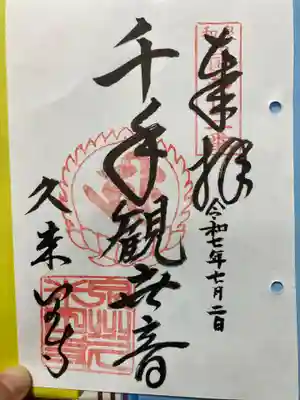 奉拝
令和七年七月二日
千手観世音
久米田寺